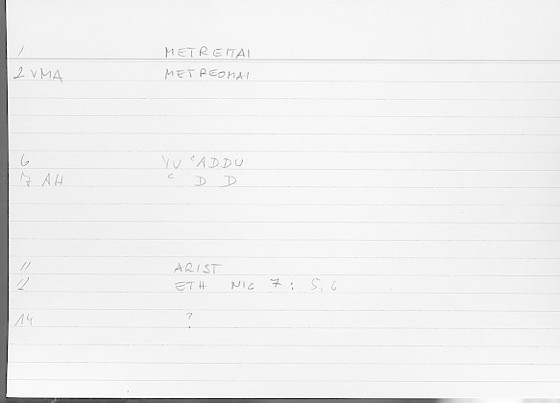 1 METREMAI
2 VMA METREOMAI
6 YU 'ADDU
7 AH ' D D
11 ARIST
12 ETH NIC 7 : 5, 6
14 ?